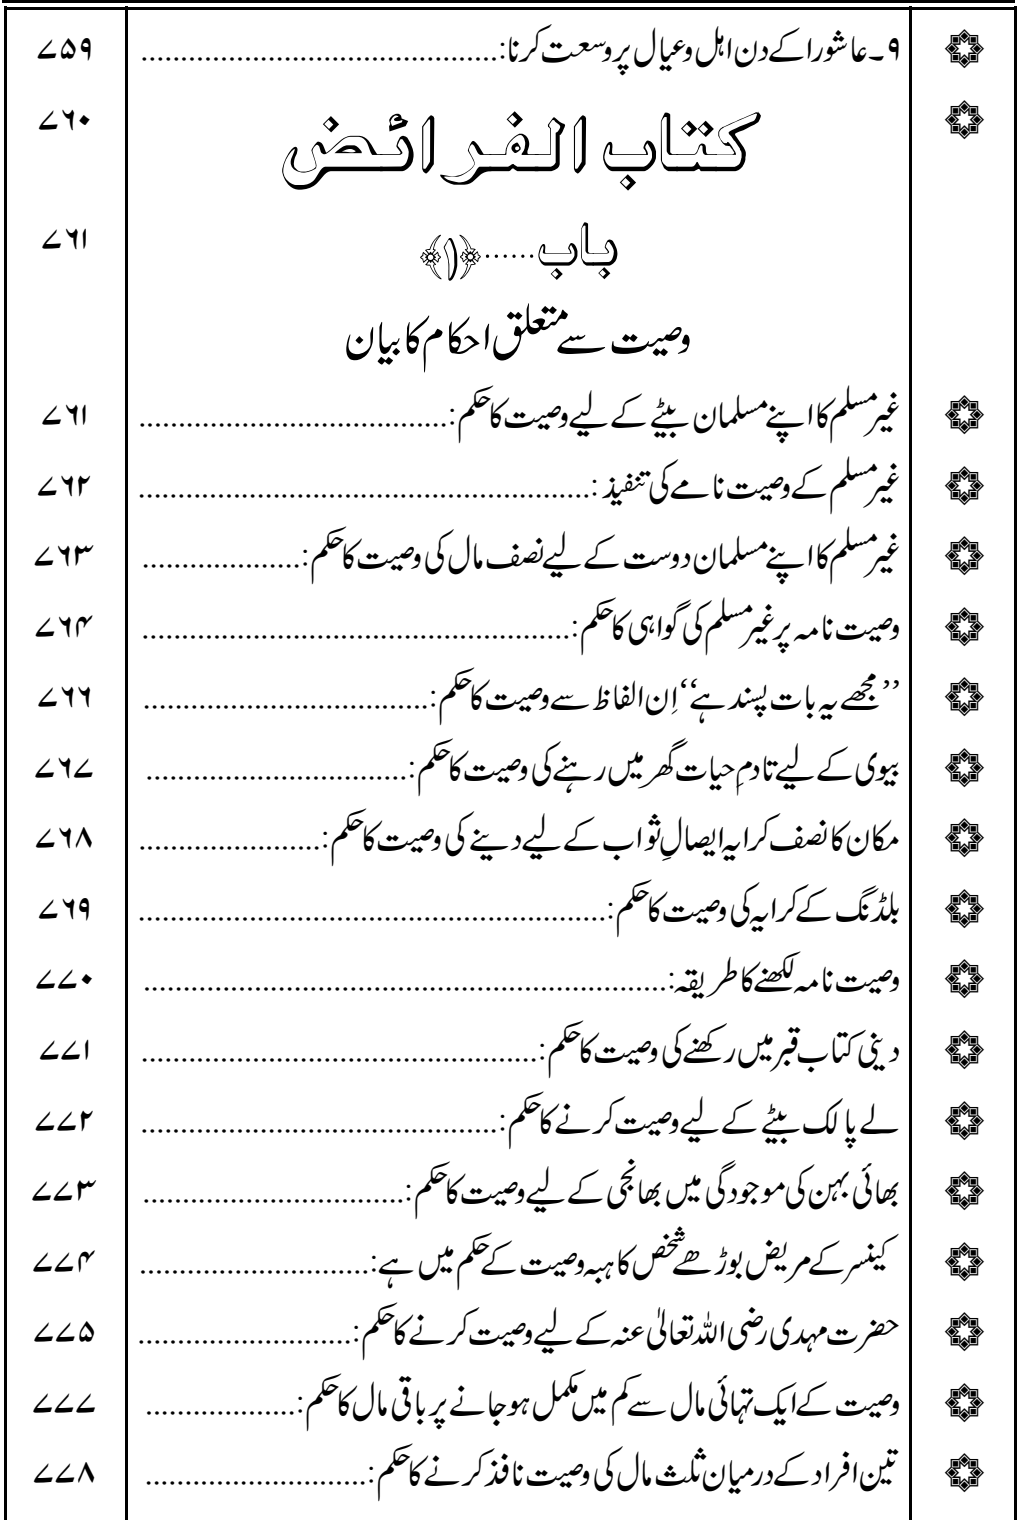 ۹۔عاشورا کے دن اہل وعیال پر وسعت کرنا:............................................. ۷۵۹
کتاب الفرائض ۷۶۰
باب......﴿۱﴾ ۷۶۱
وصیت سے متعلق احکام کا بیان
غیر مسلم کا اپنے مسلمان بیٹے کے لیے وصیت کا حکم:....................................... ۷۶۱
غیر مسلم کے وصیت نامے کی تنفیذ:......................................................... ۷۶۲
غیر مسلم کا اپنے مسلمان دوست کے لیے نصف مال کی وصیت کا حکم:.................... ۷۶۳
وصیت نامہ پر غیر مسلم کی گواہی کا حکم:...................................................... ۷۶۴
’’مجھے یہ بات پسند ہے‘‘ اِن الفاظ سے وصیت کا حکم:.................................... ۷۶۶
بیوی کے لیے تادمِ حیات گھر میں رہنے کی وصیت کا حکم:................................. ۷۶۷
مکان کا نصف کرایہ ایصالِ ثواب کے لیے دینے کی وصیت کا حکم:....................... ۷۶۸
بلڈنگ کے کرایہ کی وصیت کا حکم:........................................................... ۷۶۹
وصیت نامہ لکھنے کا طریقہ:.................................................................. ۷۷۰
دینی کتاب قبر میں رکھنے کی وصیت کا حکم:.................................................. ۷۷۱
لے پالک بیٹے کے لیے وصیت کرنے کا حکم:............................................. ۷۷۲
بھائی بہن کی موجودگی میں بھانجی کے لیے وصیت کا حکم:................................. ۷۷۳
کینسر کے مریض بوڑھے شخص کا ہبہ وصیت کے حکم میں ہے:............................. ۷۷۴
حضرت مہدی رضی اللہ تعالیٰ عنہ کے لیے وصیت کرنے کا حکم:........................... ۷۷۵
وصیت کے ایک تہائی مال سے کم میں مکمل ہو جانے پر باقی مال کا حکم:................... ۷۷۷
تین افراد کے درمیان ثلث مال کی وصیت نافذ کرنے کا حکم:............................ ۷۷۸